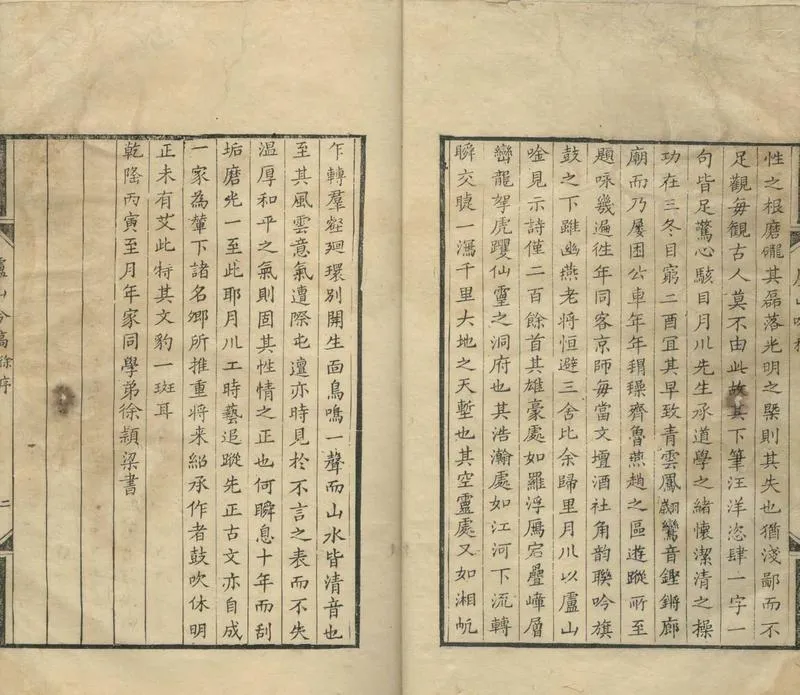 性之根磨礲其磊落光明之槩則其失也猶淺鄙而不
足觀每觀古人莫不由此故其下筆汪洋恣肆一字一
句皆足驚心駭目月川先生承道學之緒懷潔清之操
功在三冬目窮二酉宜其早致青雲鳳翽鸞音鏗鏘廊
廟而乃屢困公車年年稠璪齊魯燕趙之區遊蹤所至
題咏幾遍徃年同客京師每當文壇酒社角韵聯吟旗
鼓之下雖幽燕老将恒避三舍比余歸里月川以廬山
唫見示詩僅二百餘首其雄豪處如羅浮鴈宕疊嶂層
巒龍拏虎躩仙靈之洞府也其浩瀚處如江河下流轉
瞬交睫一瀉千里大地之天塹也其空靈處又如湘帆
乍轉羣壑廻環別開生面鳥鳴一聲而山水皆清音也
至其風雲意氣遭際屯邅亦時見於不言之表而不失
温厚和平之氣則固其性情之正也何瞬息十年而刮
垢磨光一至此耶月川工時藝追蹤先正古文亦自成
一家為輦下諸名卿所推重将来紹承作者鼓吹休明
正未有艾此特其文豹一斑耳
乾隆丙寅至月年家同學弟徐穎梁書
廬山唫稿 序
二